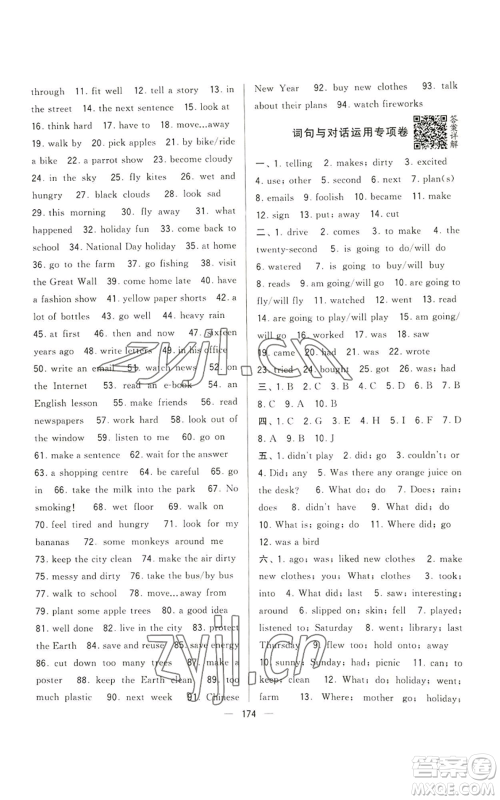 through　11. fit well　12. tell a story　13. in
the street　14. the next sentence　15. look at
16. think hard　17. draw cars　18. make a
chair　19. make a hat　20. move...away
21. walk by　22. pick apples　23. by bike/ride
a bike　24. a parrot show　25. become cloudy
26. in the sky　27. fly kites　28. wet and
hungry　29. black clouds　30. meet me
31. this morning　32. fly away　33. what
happened　34. holiday fun　35. come back to
school　36. National Day holiday　37. at home
38. go to the farm　39. go fishing　40. visit
the Great Wall　41. main news　42. have
a fashion show　43. yellow paper shorts　44. a lot
of　45. go well　46. heavy rain
47. at first　48. then and now　49. sixteen
years ago　48. write letters　49. in his office
50. write an email　51. watch news　52. on
the Internet　53. read an e-book　54. an
English lesson　55. make friends　56. read
newspapers　57. work hard　58. look out of
the window　59. listen to me　60. go on
61. make a sentence　62. wait for the answer
63. a shopping centre　64. be careful　65. go
in　66. take the milk into the park　67. No
smoking!　68. wet floor　69. walk on
70. feel tired and hungry　71. look for my
bananas　72. some monkeys around me
73. keep the city clean　74. make the air dirty
75. messy and dirty　76. take the bus/by bus
77. walk to school　78. move...away from...
79. plant some apple trees　80. a good idea
81. well done　82. live in the city　83. protect
the Earth　84. save and reuse　85. save energy
86. cut down too many trees　87. make a
poster　88. keep the Earth clean　89. use
too much plastic　90. next week　91. Chinese
New Year　92. buy new clothes　93. talk
about their plans　94. watch fireworks
词句与对话运用专项卷
答案详解
一、1. telling　2. makes; dirty　3. excited
4. use　5. second　6. next　7. plan(s)
8. emails　9. foolish　10. became　11. make
12. sign　13. put; away　14. cut
二、1. drive　2. to do　3. to make　4. the
twenty-second　5. is going to do/will do
6. watered　7. is going to buy/will buy
8. reads　9. am going/will go　10. are going to
fly/will fly　11. watched　12. went　13. visited
14. are going to play/will play　15. am going/
will go　16. worked　17. was　18. saw
19. came　20. had　21. took　22. was
23. tried　24. bought　25. got　26. was; had
三、1. B　2. C　3. A　4. B　5. B　6. C　7. A
8. C　9. A　10. B
四、1. C　2. I　3. H　4. D　5. E　6. G　7. F
8. A　9. B　10. J
五、1. didn't play　2. did; go　3. couldn't; or
4. Did; any　5. Was there any orange juice on
the desk?　6. What did; do　7. Does; rain;
does　8. didn't have　9. Where did; go
10. What is; going; do　11. What did; do
六、1. ago; was; liked new clothes　2. make
new clothes; you; try; on　3. walking
into　4. When did　5. saw; interesting;
around　6. started; cloudy　7. excited;
listened to; Saturday　8. went; library; last
Thursday　9. flew too high; onto; down
10. sunny; Sunday; had; picnic　11. can; to
keep; clean　12. coming; holiday; go; went;
farm　13. Where; mother go; holiday;
174
zyjl.cn
zyjl.cn